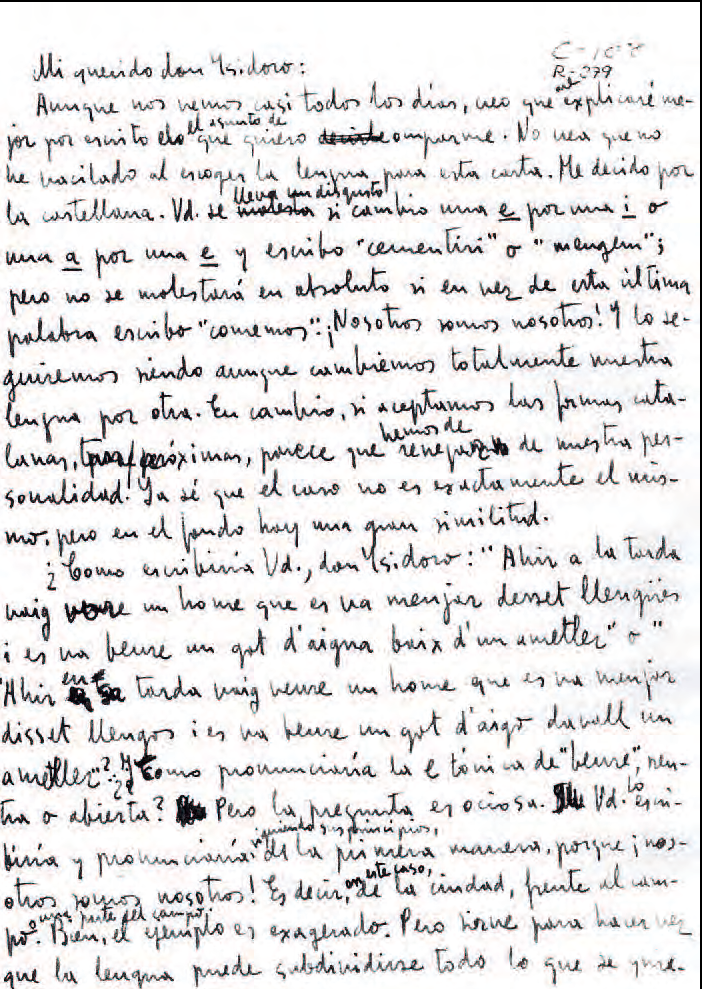 C-108
R-279
Mi querido don Ysidoro:
Aunque nos vemos casi todos los días, creo que explicaré me-
el asunto de
jor por escrito que quiero ocuparme. No crea que no
he vacilado al escoger la lengua para esta carta. Me decido por
lleva un disgusto
la castellana. Vd. se molesta si cambio una e por una i o
una a por una e y escribo "cementiri" o "mengem";
pero no se molestará en absoluto si en vez de esta última
palabra escribo "comemos". ¡Nosotros somos nosotros! Y lo se-
guiremos siendo aunque cambiemos totalmente nuestra
lengua por otra. En cambio, si aceptamos las formas cata-
hemos de
lanas, próximas, parece que renegar de nuestra per-
sonalidad! Ya sé que el caso no es exactamente el mis-
mo, pero en el fondo hay una gran similitud.
¿Como escribiria Vd., don Ysidoro: "Ahir a la tarda
vaig veure un home que es va menjar desset llengües
i es va beure un got d'aigua baix d'un ametler" o "
en
"Ahir tarda vaig veure un home que es va menjar
disset llengos i es va beure un got d'aigo davall un
ametller"? ¿Y como pronunciaría la e tónica de "beure", cen-
lo
tra o abierta? Pero la pregunta es ociosa. Vd. escri-
siguiendo sus principios,
biría y pronunciaría de la primera manera, porque ¡nos-
en este caso,
otros somos nosotros! Es decir, de la ciudad, frente al cam-
o una parte del campo.
po. Bien, el ejemplo es exagerado. Pero sirve para hacer ver
que la lengua puede subdividirse todo lo que se quie-